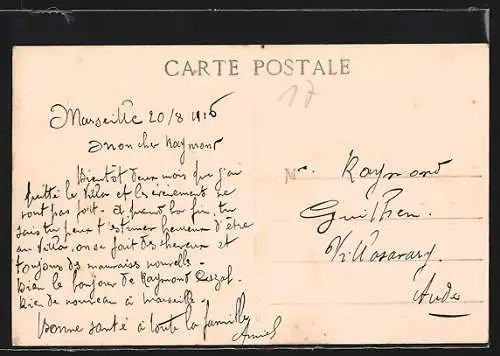 CARTE POSTALE
17
Marseille 20/8 1916
Mon cher Raymont
Bientôt deux mois que j'ai
quitté le Villar et les évèniement ne
vont pas fort. à quand la fin. tu
sais tu peux t'estimer heureux d'être
au Villar. on se fait des cheveux et
toujours des mauvaises nouvelles.
Bien le bonjour de Raymont
Rien de nouveau à Marseille.
Bonne santé à toute la famille
Mr. Raymont
Guilhem.
Villasavary.
Aude